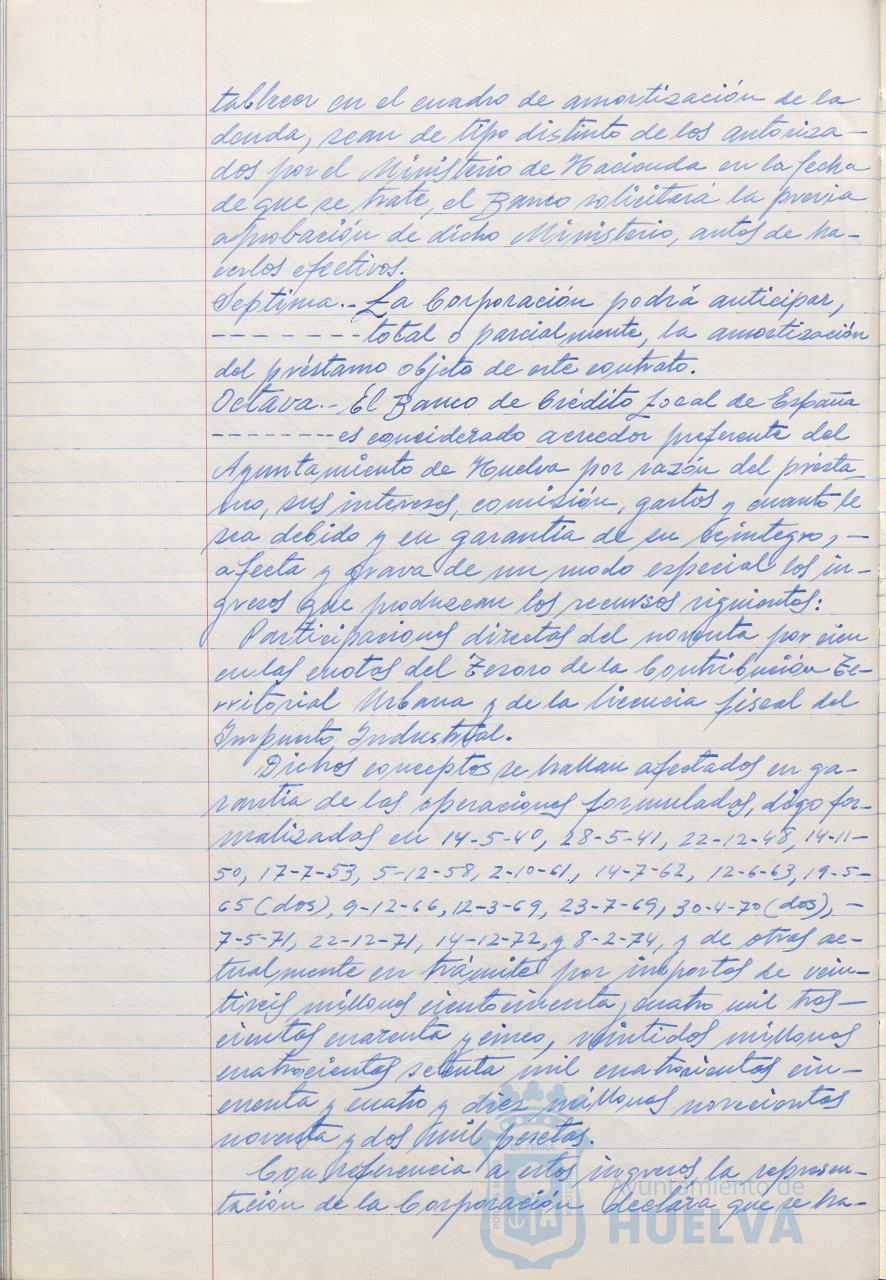 tablecer en el cuadro de amortización de la
deuda, sean de tipo distinto de los autoriza-
dos por el Ministerio de Hacienda en la fecha
de que se trate, el Banco solicitará la previa
aprobación de dicho Ministerio, antes de ha-
cerlos efectivos.
Septima.- La Corporación podrá anticipar,
- - - - - - - - total o parcialmente, la amortización
del préstamo objeto de este contrato.
Octava.- El Banco de Crédito Local de España
- - - - - - - - es considerado acreedor preferente del
Ayuntamiento de Huelva por razón del présta-
mo, sus intereses, comisión, gastos y cuanto le
sea debido y en garantía de su reintegro, -
afecta y grava de un modo especial los in-
gresos que produzcan los recursos siguientes:
Participaciones directas del noventa por cien
en las cuotas del Tesoro de la Contribución Te-
rritorial Urbana y de la licencia fiscal del
Impuesto Industrial.
Dichos conceptos se hallan afectados en ga-
rantía de las operaciones formuladas, digo for-
malizadas en 14-5-40, 28-5-41, 22-12-48, 14-11-
50, 17-7-53, 5-12-58, 2-10-61, 14-7-62, 12-6-63, 19-5-
65 (dos), 9-12-66, 12-3-69, 23-7-69, 30-4-70 (dos), -
7-5-71, 22-12-71, 14-12-72, y 8-2-74, y de otras ac-
tualmente en trámite por importes de vein-
tiseis millones cientocincuenta y cuatro mil tres-
cientas cuarenta y cinco, veintidos millones
cuatrocientas setenta mil cuatrocientas cin-
cuenta y cuatro y diez millones novecientas
noventa y dos mil pesetas.
Con referencia a estos ingresos la represen-
tación de la Corporación declara que se ha-
Ayuntamiento de
HUELVA